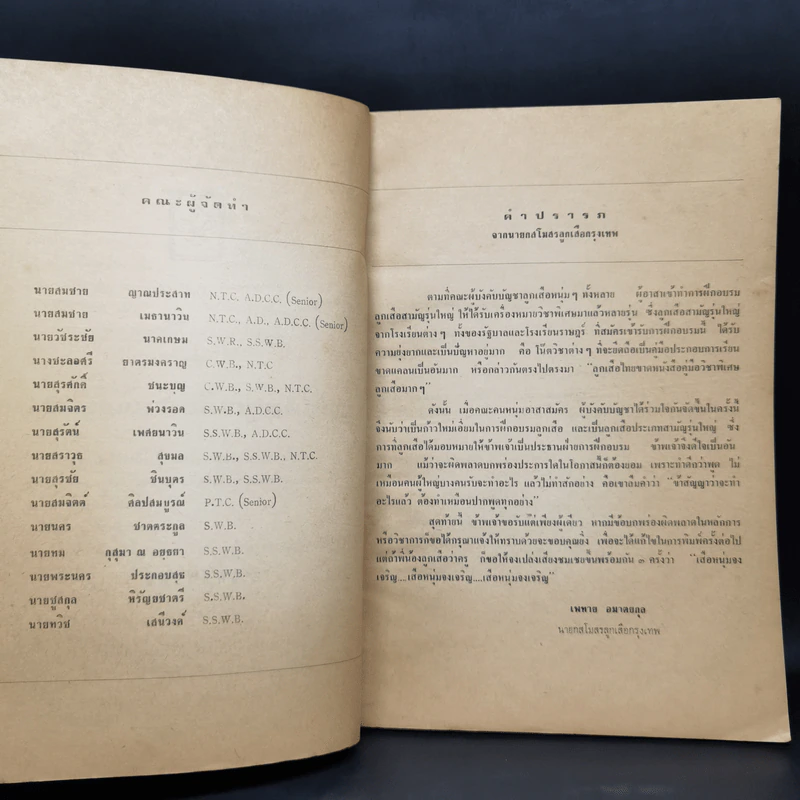 คณะผู้จัดทำ
นายสมชาย ญาณประสาท N.T.C. A.D.C.C. (Senior)
นายสมชาย เมธานาวิน N.T.C., A.D., A.D.C.C. (Senior)
นายวัชระชัย นาคเกษม S.W.R., S.S.W.B.
นางชะลอศรี ยาตรมงคราญ C.W.B., N.T.C
นายสุรศักดิ์ ชนะบุญ C.W.B., S.W.B., N.T.C.
นายสมจิตร พ่วงรอด S.W.B., A.D.C.C.
นายสุรัตน์ เพศยนาวิน S.S.W.B., A.D.C.C.
นายสราวุธ สุขมล S.W.B., S.S.W.B., N.T.C.
นายสุรชัย ชินบุตร S.W.B., S.S.W.B.
นายสมจิตต์ ศิลปสมบูรณ์ P.T.C. (Senior)
นายนคร ชาตตระกูล S.W.B.
นายทม กุสุมา ณ อยุธยา S.S.W.B.
นายพระนคร ประกอบสุข S.S.W.B.
นายชูสกุล หิรัญยชาตรี S.S.W.B.
นายทวิช เสนีวงค์ S.S.W.B.
คำปรารภ
จากนายกสโมสรลูกเสือกรุงเทพ
ตามที่คณะผู้บังคับบัญชาลูกเสือหนุ่ม ๆ ทั้งหลาย ผู้อาสาเข้าทำการฝึกอบรม
ลูกเสือสามัญรุ่นใหญ่ ให้ได้รับเครื่องหมายวิชาพิเศษมาแล้วหลายรุ่น ซึ่งลูกเสือสามัญรุ่นใหญ่
จากโรงเรียนต่าง ๆ ทั้งของรัฐบาลและโรงเรียนราษฎร์ ที่สมัครเข้ารับการฝึกอบรมนี้ ได้รับ
ความยุ่งยากและเป็นปัญหาอยู่มาก คือ โน๊ตวิชาต่าง ๆ ที่จะยึดถือเป็นคู่มือประกอบการเรียน
ขาดแคลนเป็นอันมาก หรือกล่าวกันตรงไปตรงมา “ลูกเสือไทยขาดหนังสือคู่มือวิชาพิเศษ
ลูกเสือมาก ๆ”
ดังนั้น เมื่อคณะคนหนุ่มอาสาสมัคร ผู้บังคับบัญชาได้ร่วมใจกันจัดขึ้นในครั้งนี้
จึงนับว่าเป็นก้าวใหม่เอี่ยมในการที่ฝึกอบรมลูกเสือ และเป็นลูกเสือประเภทสามัญรุ่นใหญ่ ซึ่ง
การที่ลูกเสือได้มอบหมายให้ข้าพเจ้าเป็นประธานฝ่ายการฝึกอบรม ข้าพเจ้าจึงดีใจเป็นอัน
มาก แม้ว่าจะผิดพลาดบกพร่องประการใดในโอกาสนี้ก็ต้องยอม เพราะทำดีกว่าพูด ไม่
เหมือนคนผู้ใหญ่บางคนนับจะทำอะไร แล้วไม่ทำสักอย่าง คือเขาลืมคำว่า “ข้าสัญญาว่าจะทำ
อะไรแล้ว ต้องทำเหมือนปากพูดทุกอย่าง”
สุดท้ายนี้ ข้าพเจ้าขอรับแต่เพียงผู้เดียว หากมีข้อบกพร่องผิดพลาดในหลักการ
หรือวิชาการก็ขอได้กรุณาแจ้งให้ทราบด้วยจะขอบคุณยิ่ง เพื่อจะได้แก้ไขในการพิมพ์ครั้งต่อไป
แต่ถ้าพี่น้องลูกเสือว่าครู ก็ขอให้จงเปล่งเสียงชมเชยขึ้นพร้อมกัน ๓ ครั้งว่า “เสือหนุ่มจง
เจริญ....เสือหนุ่มจงเจริญ....เสือหนุ่มจงเจริญ”
เพทาย อมาตยกุล
นายกสโมสรลูกเสือกรุงเทพ